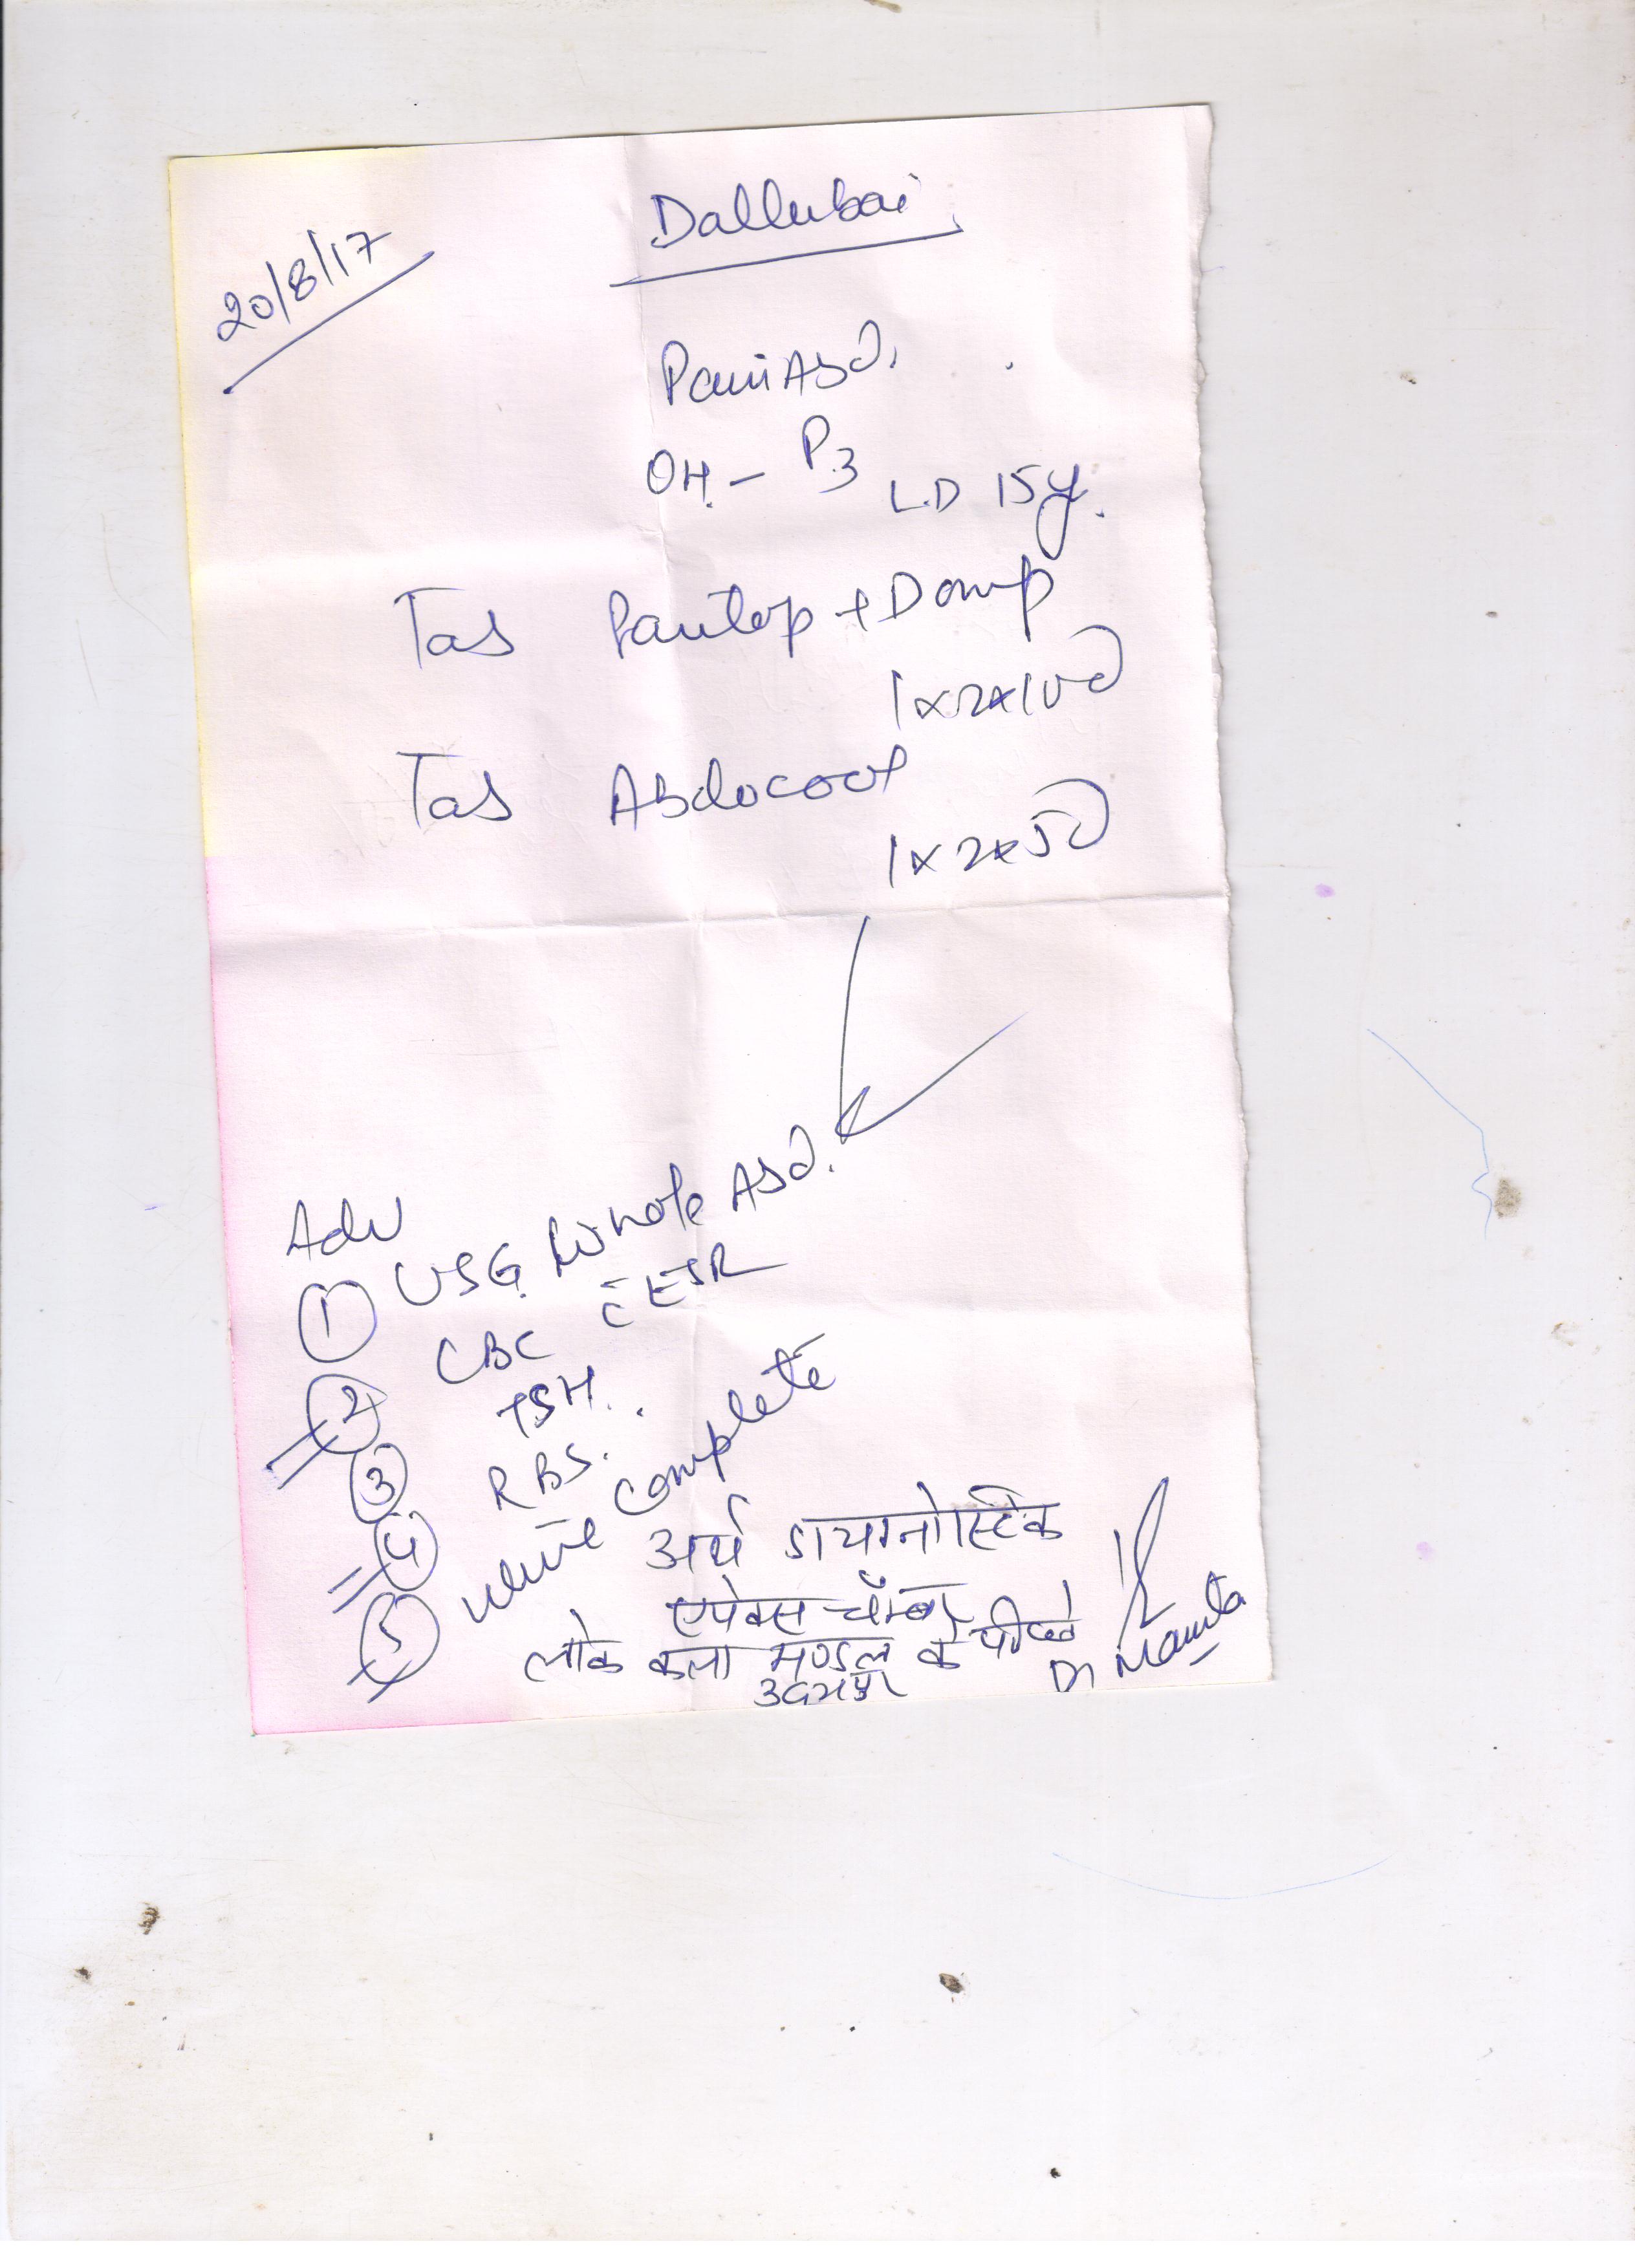 Dallubai
20/8/17
Pain Abd.
OH. - P3 L.D 15y.
Tab Pantop + Domp
1x2x10d
Tab Abdocool
1x2x5d
Adv
① USG whole Abd.
② CBC c̄ ESR
③ TSH.
④ RBS.
⑤ Urine complete
अर्थ डायग्नोस्टिक
एपेक्स चैंम्बर
लोक कला मण्डल के पीछे
उदयपुर
Dr Mamta